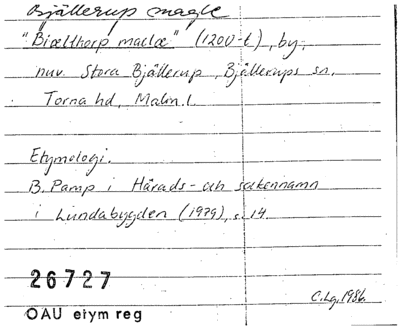 Bjällerup magle
"Biælthorp maclæ" (1200-t), by,
nuv. Stora Bjällerup, Bjällerups sn,
Torna hd, Malm. l.
Etymologi.
B. Pamp i Härads- och sockennamn
i Lundabygden (1979), s. 14.
26727
C. Lg, 1986.
OAU etym reg